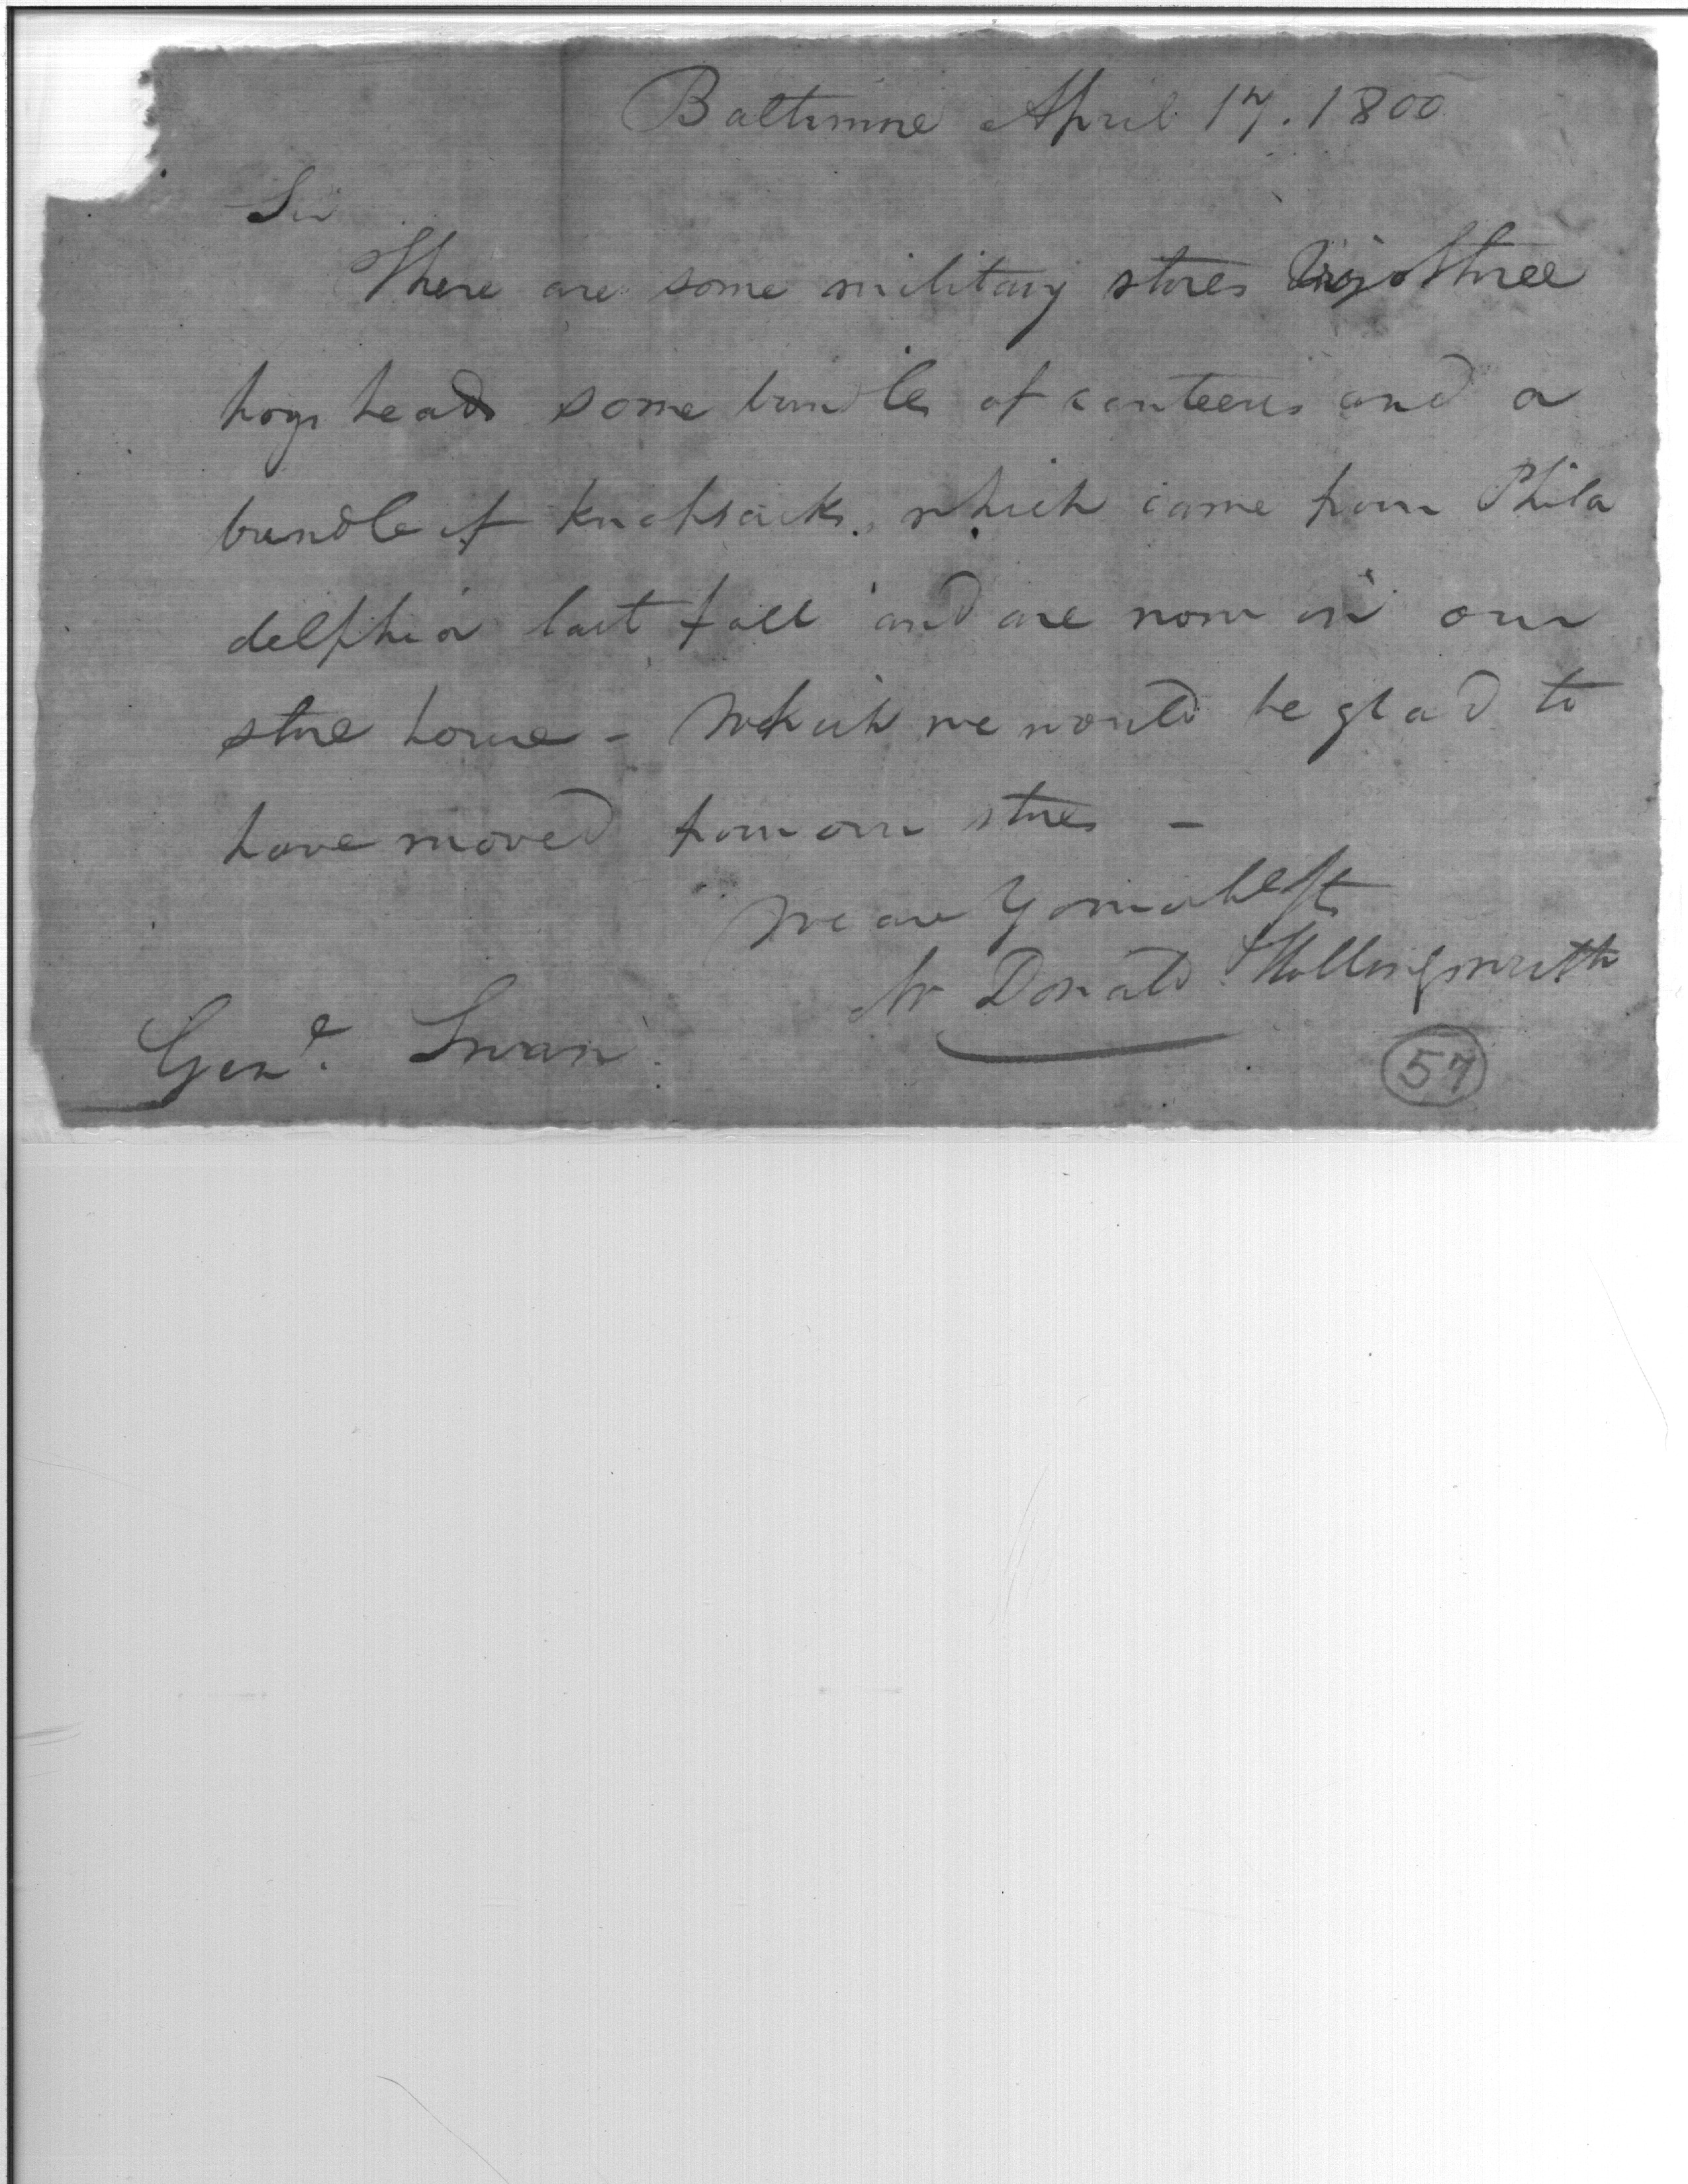 Baltimore April 17. 1800
Sir
There are some military stores three
hogs heads some bundles of canteens and a
bundle of knapsacks, which came from Phila
delphia last fall and are now in our
store house - Which we would be glad to
have moved from our stores -
We are Your ob St
Mc Donald Hollingsworth
Genl. Swan
57